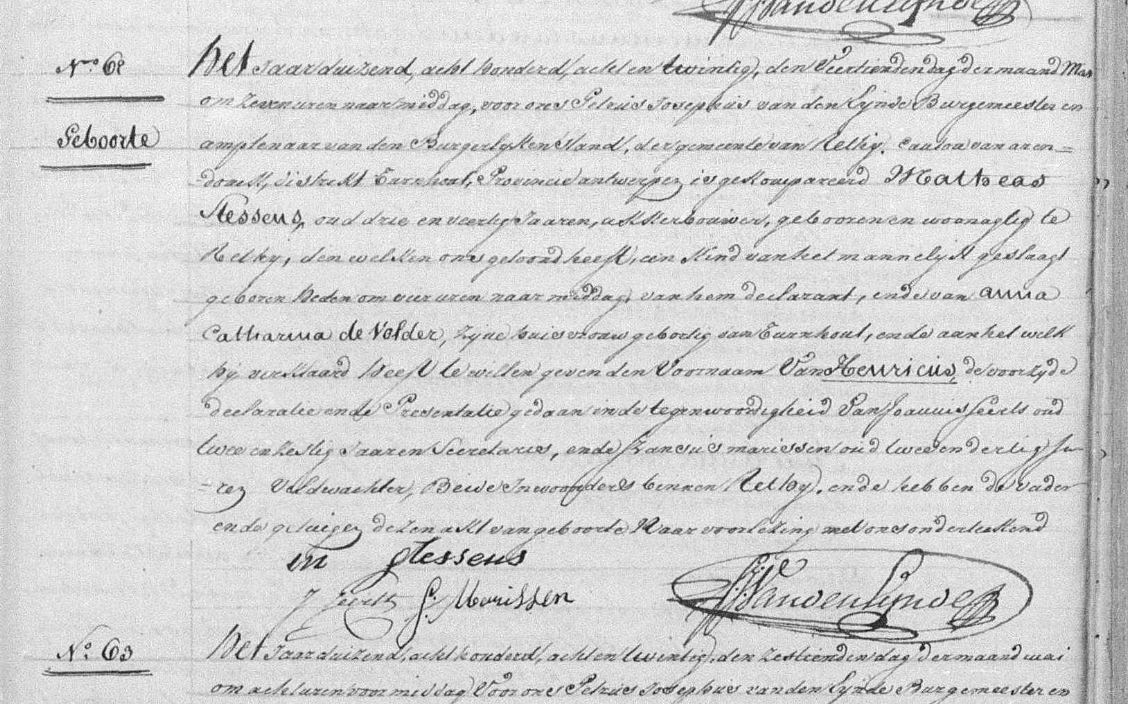 PJVandenEynde
N.º 62
Geboorte
Het Jaar duizend, acht honderd, acht en twintig, den Veertienden dag der maand Mai
om zeven uren naar middag, voor ons Petrus Josephus van den Eynde Burgemeester en
amptenaar van den Burgerlyken Stand, der gemeente van Rethy, canton van aren=
donck, distrikt Turnhout, Provincie antwerpen is gekompareerd Matheas
Stessens, oud drie en veertig Jaaren, akkerbouwer, gebooren en woonagtig te
Rethy, den welken ons getoond heeft, een kind van het mannelyk geslagt
geboren heden om vier uren naar middag, van hem declarant, ende van anna
Catharina de Volder, zyne huisvrouw gebortig van Turnhout, ende aan het welk
hy verklaard heeft te willen geven den Voornaam Van Henricus, de voorzyde
declaratie ende Presentatie gedaan in de tegenwoordigheid Van Joannis Seels oud
twee en zestig Jaaren Secretaris, ende fransus marissen oud twee en dertig Ja-
=ren Veldwachter, Beide Inwoonders binnen Rethy, ende hebben de vader
ende getuigen dezen akt van geboorte Naar voorlezing met ons onderteekend
m Stessens
J Seels f: Marissen PJVandenEynde
N.º 63
Het Jaar duizend, acht honderd, acht en twintig, den zestienden dag der maand mai
om acht uren voor middag Voor ons Petrus Josephus van den Eynde Burgemeester en